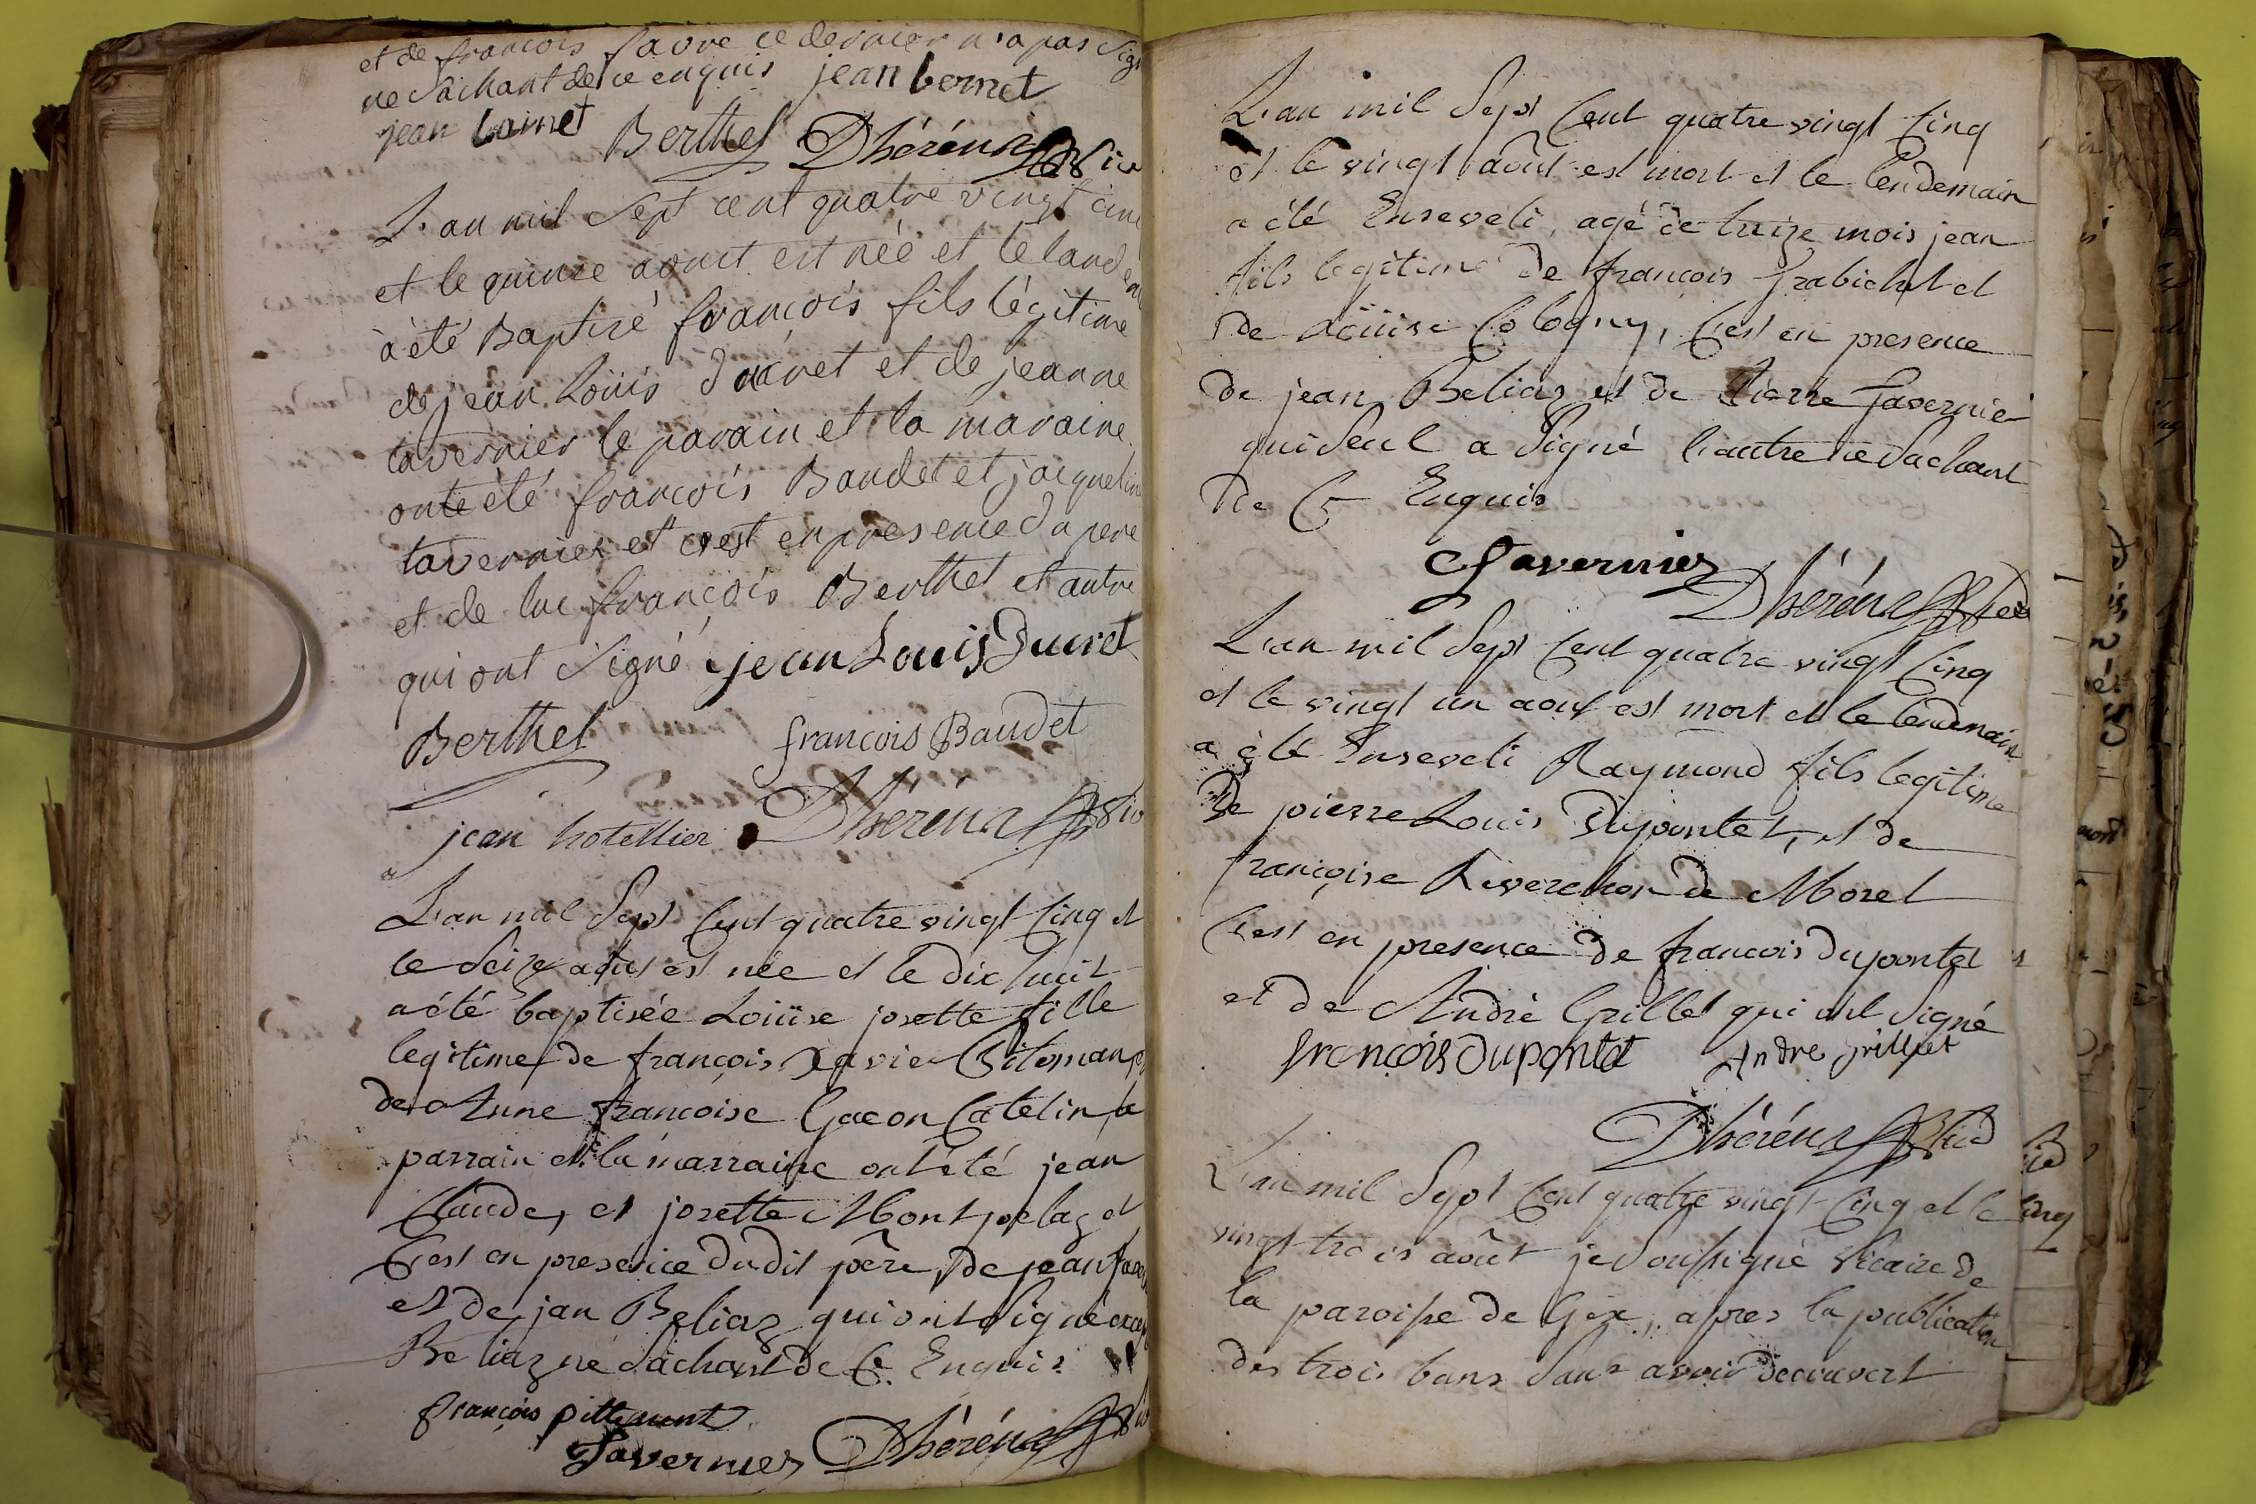 et de francois favre ce dernier n'a pas sig
ne sachant de ce enquis jean bornet
jean bornet Berthet Dhéréns vic
L'an mil sept cent quatre vingt cinq
et le quinze aoust est née et le landem
à été Baptisé françois fils légitime
de jean Loüis Ducret et de jeanne
tavernier le parain et la maraine
onte été françois Baudet et jaqueline
tavernier et c'est en presence du pere
et de luc françois Berthet et autre
qui ont signé jean Louis Ducret
Berthet francois Baudet
jean hotellier Dhéréns vic
L'an mil Sept Cent quatre vingt Cinq et
le Seize août est née et le dix huit
a été baptisée Loüise josette fille
legitime de françois Xavier
de Anne françoise Gacon Catelin, le
parrain et la marraine ont été jean
Claude, et josette Montpelaz et
C'est en presence dudit père, de jean
et de jan Beliaz qui ont signé excep
Beliaz ne Sachant de Ce Enquis
françois
Tavernier Dhéréns vic
L'an mil Sept Cent quatre vingt Cinq
et le vingt août est mort et le lendemain
a été Enseveli, agé de treize mois jean
fils legitime de françois Grabichet et
de Loüise Cologny, C'est en presence
de jean Beliaz et de Pierre Tavernier
qui Seul a Signé l'autre ne Sachant
de Ce Enquis
Tavernier
Dhéréns vic
L'an mil Sept Cent quatre vingt Cinq
et le vingt un aout est mort et le lendemain
a été Enseveli Raymond fils legitime
De pierre Louis Dupontet, et de
françoise Reverchon de Morel
C'est en presence de francois dupontet
et de André Grillet qui ont Signé
françois Dupontet Andre grilliet
Dhéréns vic
L'an mil Sept Cent quatre vingt Cinq et le
vingt trois août je soussigné Vicaire de
la paroisse de Gex, apres la publication
des trois bans Sans avoir decouvert